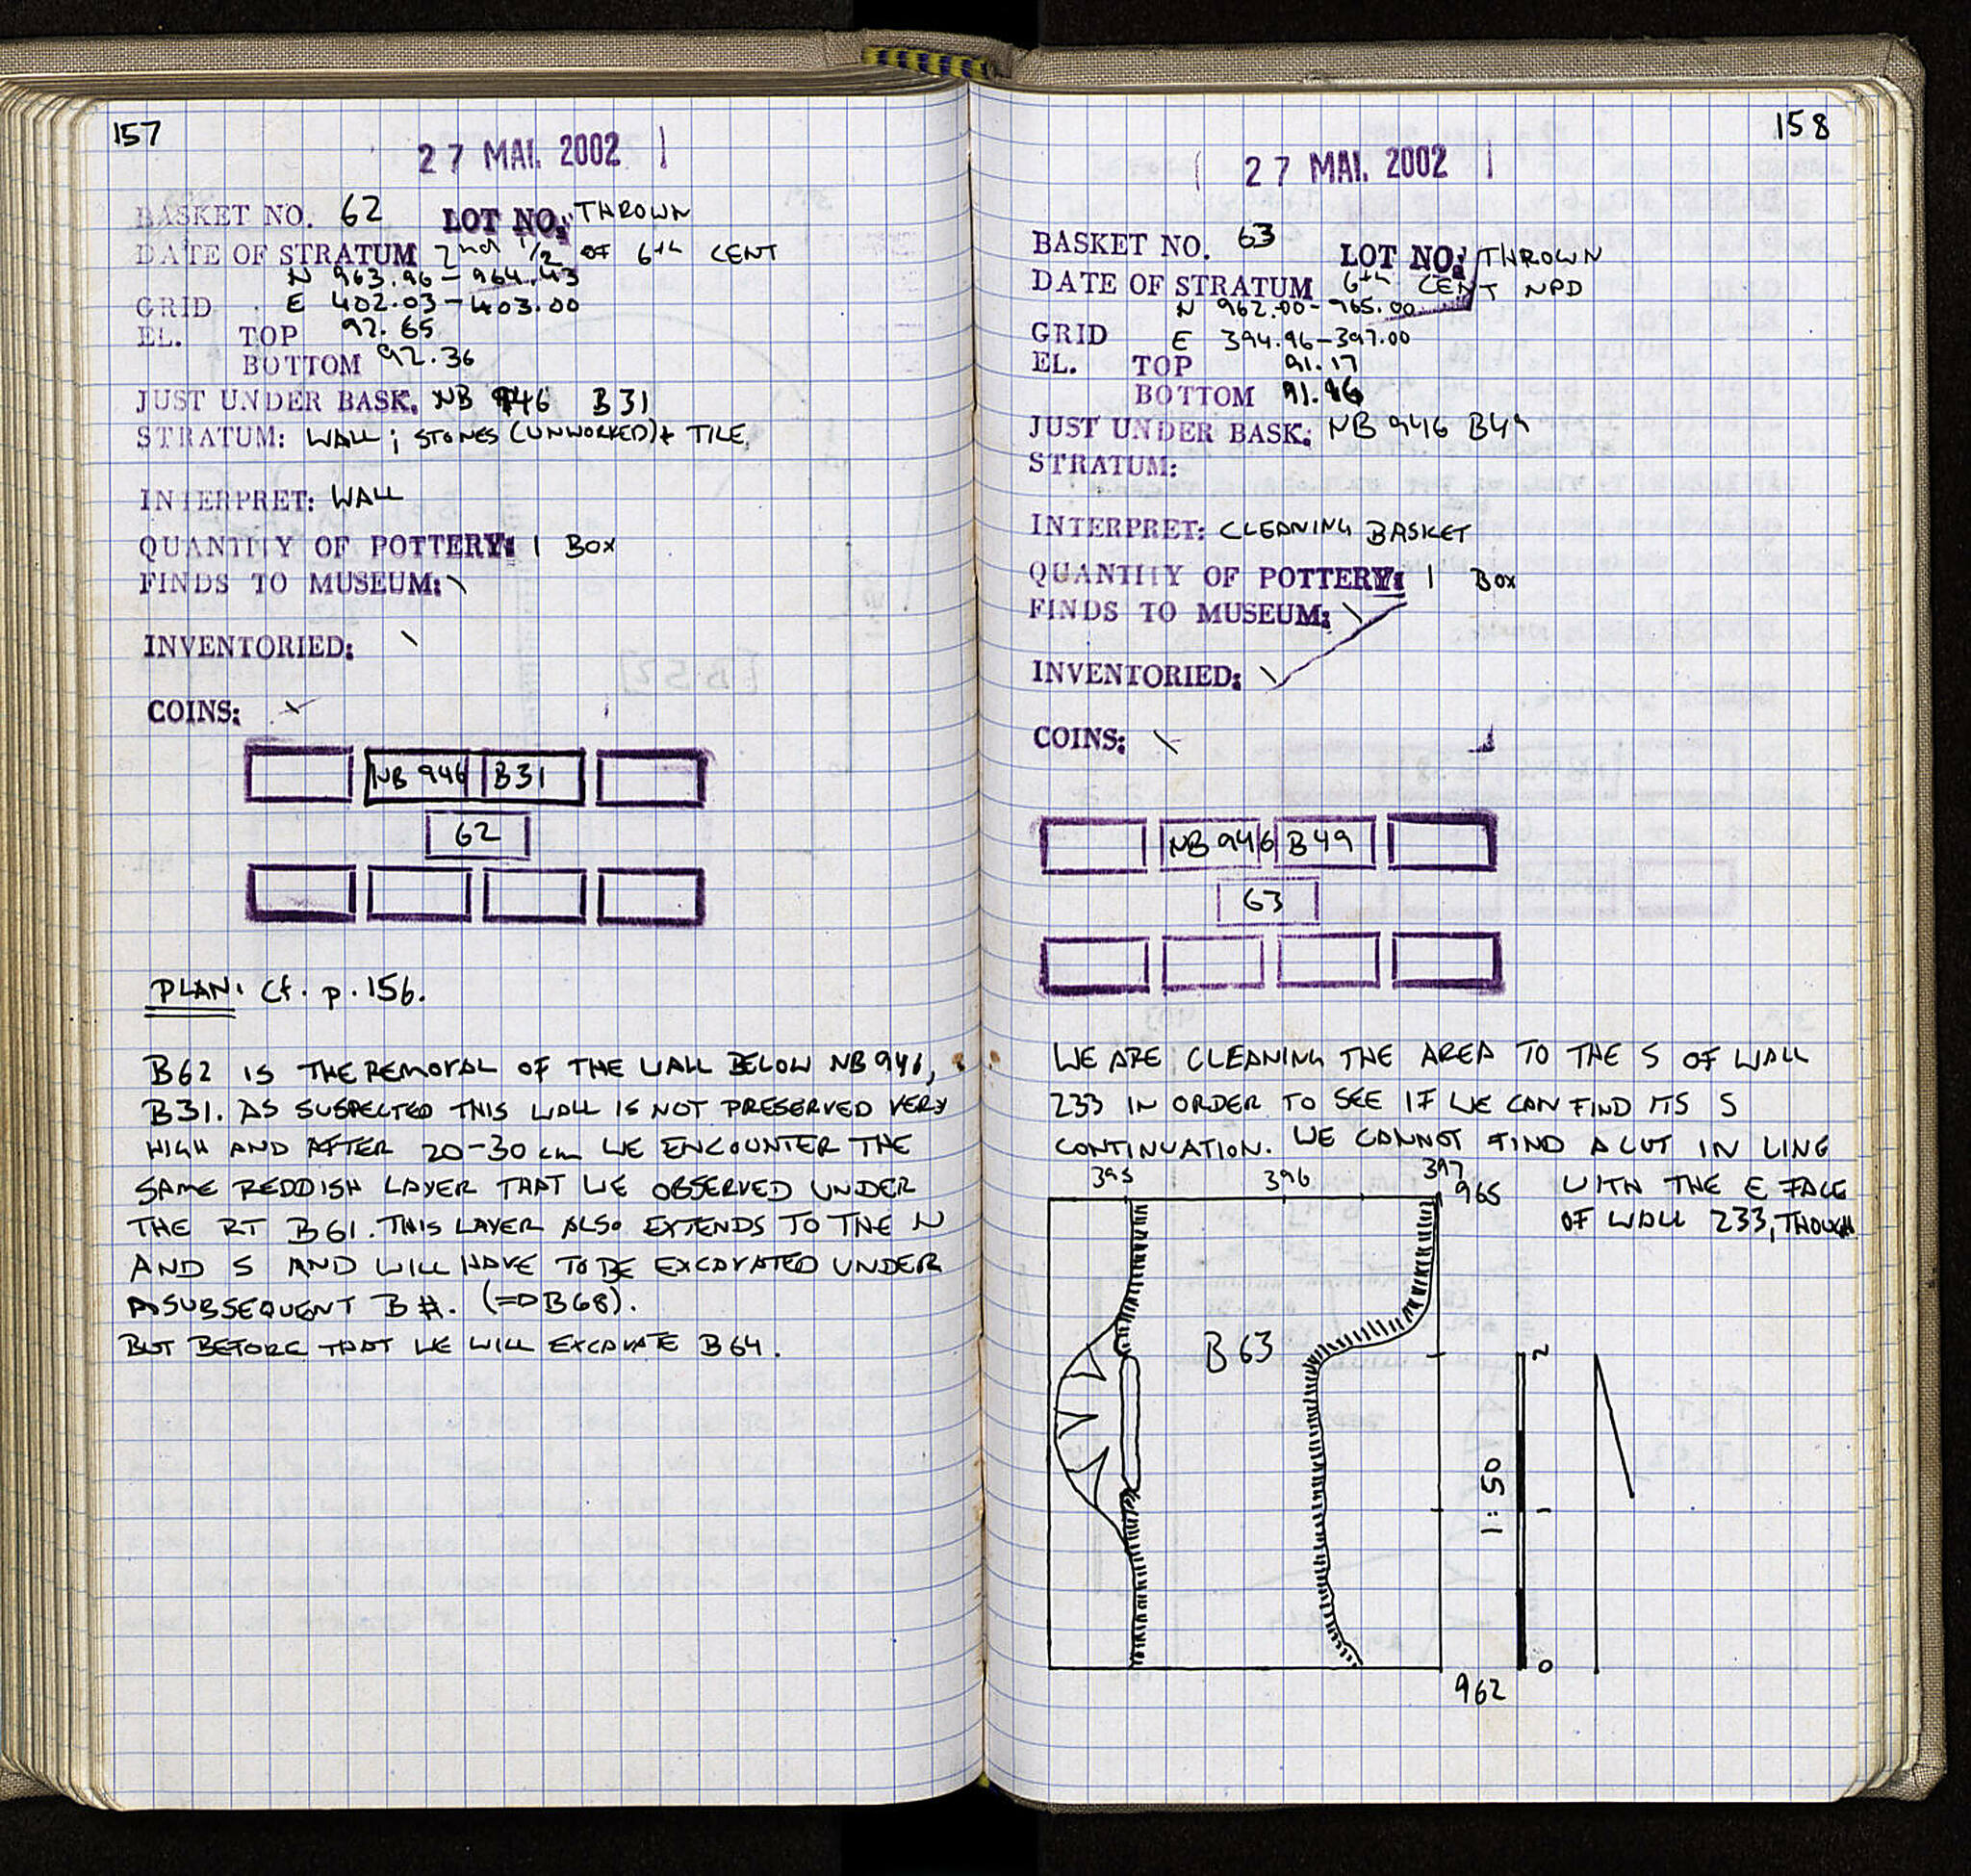 157
27 MAI. 2002
BASKET NO. 62 LOT NO: THROWN
DATE OF STRATUM 2nd 1/2 OF 6th CENT
N 963.96 - 964.43
GRID E 402.03 - 403.00
EL. TOP 92.65
BOTTOM 92.36
JUST UNDER BASK. NB 946 B31
STRATUM: WALL; STONES (UNWORKED) + TILE
INTERPRET: WALL
QUANTITY OF POTTERY: 1 BOX
FINDS TO MUSEUM: \
INVENTORIED: \
COINS: \
NB 946 B31
62
PLAN: Cf. p. 156.
B62 IS THE REMOVAL OF THE WALL BELOW NB 946,
B31. AS SUSPECTED THIS WALL IS NOT PRESERVED VERY
HIGH AND AFTER 20-30 cm WE ENCOUNTER THE
SAME REDDISH LAYER THAT WE OBSERVED UNDER
THE RT B61. THIS LAYER ALSO EXTENDS TO THE N
AND S AND WILL HAVE TO BE EXCAVATED UNDER
A SUBSEQUENT B #. (=D B68).
BUT BEFORE THAT WE WILL EXCAVATE B64.
158
27 MAI. 2002
BASKET NO. 63 LOT NO: THROWN
DATE OF STRATUM 6th CENT NPD
N 962.00 - 965.00
GRID E 394.96 - 397.00
EL. TOP 91.17
BOTTOM
JUST UNDER BASK: NB 946 B49
STRATUM:
INTERPRET: CLEANING BASKET
QUANTITY OF POTTERY: 1 BOX
FINDS TO MUSEUM: \
INVENTORIED: \
COINS: \
NB 946 B49
63
WE ARE CLEANING THE AREA TO THE S OF WALL
233 IN ORDER TO SEE IF WE CAN FIND ITS S
CONTINUATION. WE CANNOT FIND A CUT IN LINE
WITH THE E FACE
OF WALL 233, THOUGH
395 396 397
965
B 63
2
1:50
1
0
962